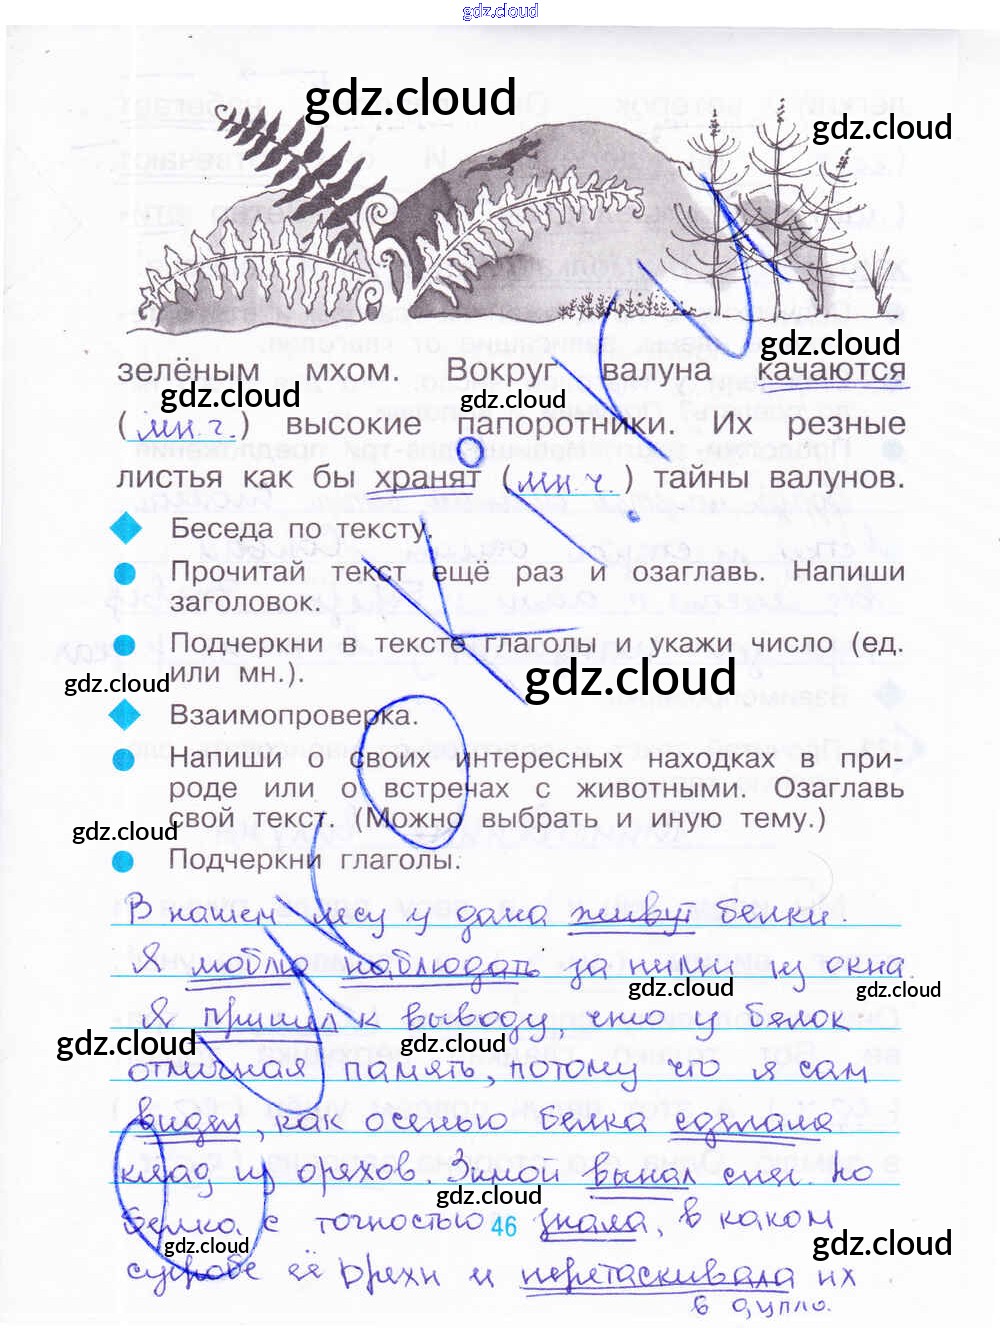 gdz.cloud
gdz.cloud
gdz.cloud
gdz.cloud
зелёным мхом. Вокруг валуна качаются
gdz.cloud
gdz.cloud
(мн.ч.) высокие папоротники. Их резные
листья как бы хранят (мн.ч.) тайны валунов.
Беседа по тексту.
Прочитай текст ещё раз и озаглавь. Напиши
заголовок.
Подчеркни в тексте глаголы и укажи число (ед.
или мн.).
gdz.cloud
gdz.cloud
Взаимопроверка.
Напиши о своих интересных находках в при-
роде или о встречах с животными. Озаглавь
свой текст. (Можно выбрать и иную тему.)
gdz.cloud
Подчеркни глаголы.
В нашем лесу у дома живут белки.
Я люблю наблюдать за ними из окна.
gdz.cloud
gdz.cloud
Я пришёл к выводу, что у белок
gdz.cloud
gdz.cloud
отличная память, потому что я сам
видел, как осенью белка сделала
клад из орехов. Зимой выпал снег. Но
gdz.cloud
белка с точностью знала, в каком
46
gdz.cloud
gdz.cloud
сугробе её орехи и перетаскивала их
в дупло.